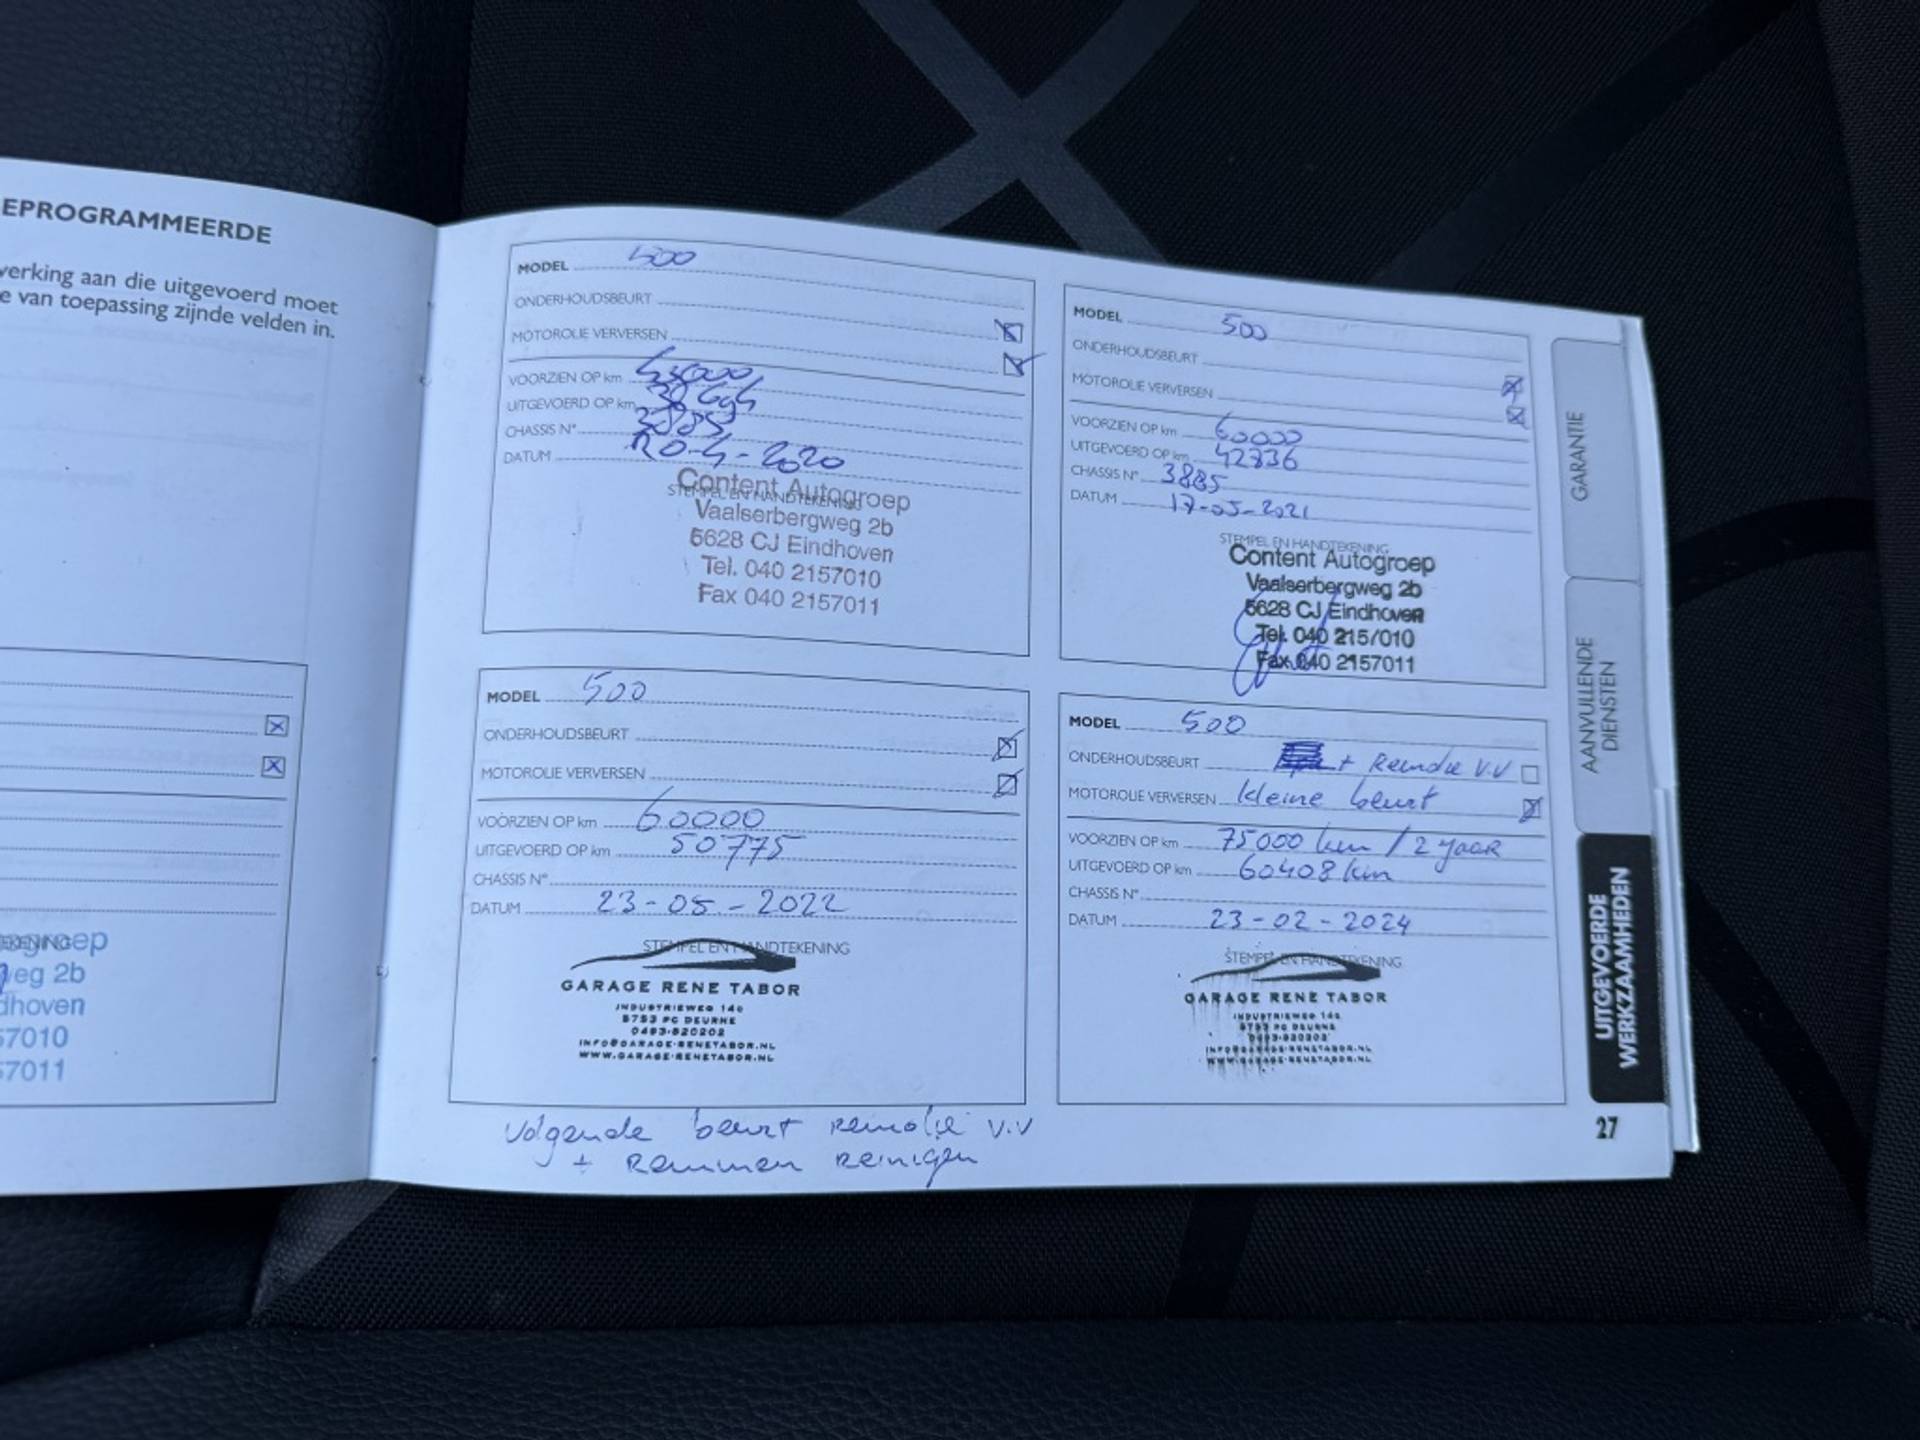 EPROGRAMMEERDE
verking aan die uitgevoerd moet
e van toepassing zijnde velden in.
ogroep
eg 2b
dhoven
57010
57011
MODEL 500
ONDERHOUDSBEURT
MOTOROLIE VERVERSEN
VOORZIEN OP km 45000
UITGEVOERD OP km
CHASSIS N° 3885
DATUM 20-4-2020
STEMPEL EN HANDTEKENING
Content Autogroep
Vaalserbergweg 2b
5628 CJ Eindhoven
Tel. 040 2157010
Fax 040 2157011
MODEL 500
ONDERHOUDSBEURT
MOTOROLIE VERVERSEN
VOORZIEN OP km 60000
UITGEVOERD OP km 42736
CHASSIS N° 3885
DATUM 17-05-2021
STEMPEL EN HANDTEKENING
Content Autogroep
Vaalserbergweg 2b
5628 CJ Eindhoven
Tel. 040 2157010
Fax 040 2157011
MODEL 500
ONDERHOUDSBEURT
MOTOROLIE VERVERSEN
VOORZIEN OP km 60000
UITGEVOERD OP km 50775
CHASSIS N°
DATUM 23-05-2022
STEMPEL EN HANDTEKENING
GARAGE RENE TABOR
INDUSTRIEWEG 14c
5753 PC DEURNE
0493-820202
INFO@GARAGE-RENETABOR.NL
WWW.GARAGE-RENETABOR.NL
Volgende beurt remolie V.V
+ Remmen Reinigen
MODEL 500
ONDERHOUDSBEURT + Remolie V.V
MOTOROLIE VERVERSEN kleine beurt
VOORZIEN OP km 75000 km / 2 jaar
UITGEVOERD OP km 60408 km
CHASSIS N°
DATUM 23-02-2024
STEMPEL EN HANDTEKENING
GARAGE RENE TABOR
INDUSTRIEWEG 14c
5753 PC DEURNE
0493-820202
INFO@GARAGE-RENETABOR.NL
WWW.GARAGE-RENETABOR.NL
GARANTIE
AANVULLENDE
DIENSTEN
UITGEVOERDE
WERKZAAMHEDEN
27